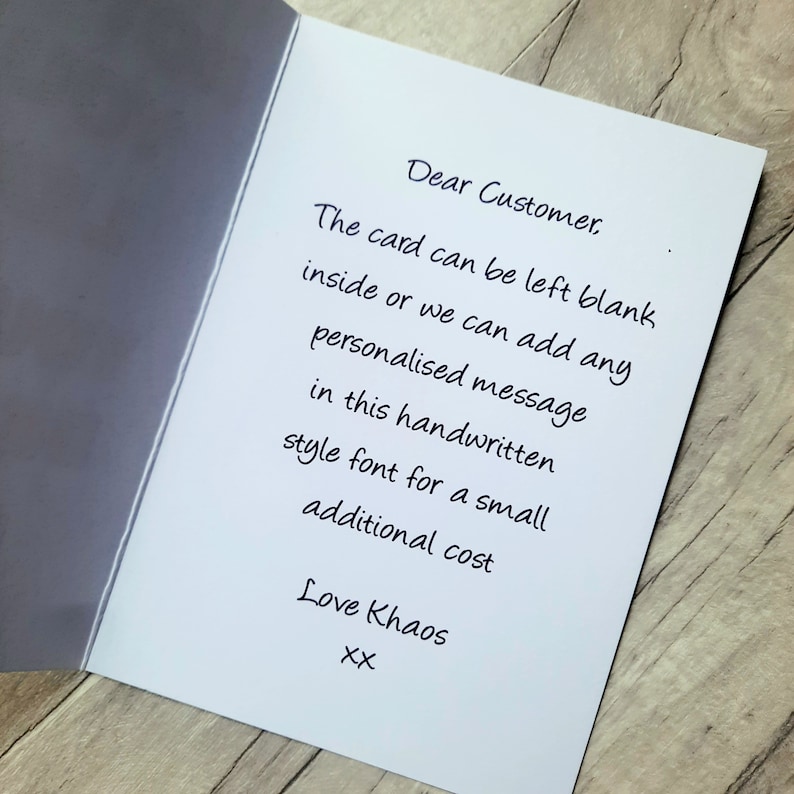 Dear Customer,
The card can be left blank
inside or we can add any
personalised message
in this handwritten
style font for a small
additional cost
Love Khaos
xx